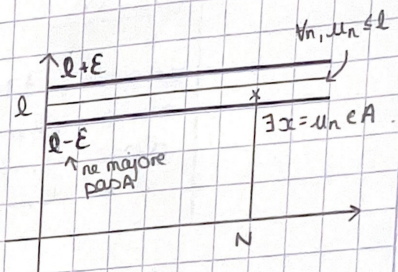 ∀n, un ≤ l
l+ε
l
l-ε
∃x=un∈A.
↑ ne majore
pas A
N